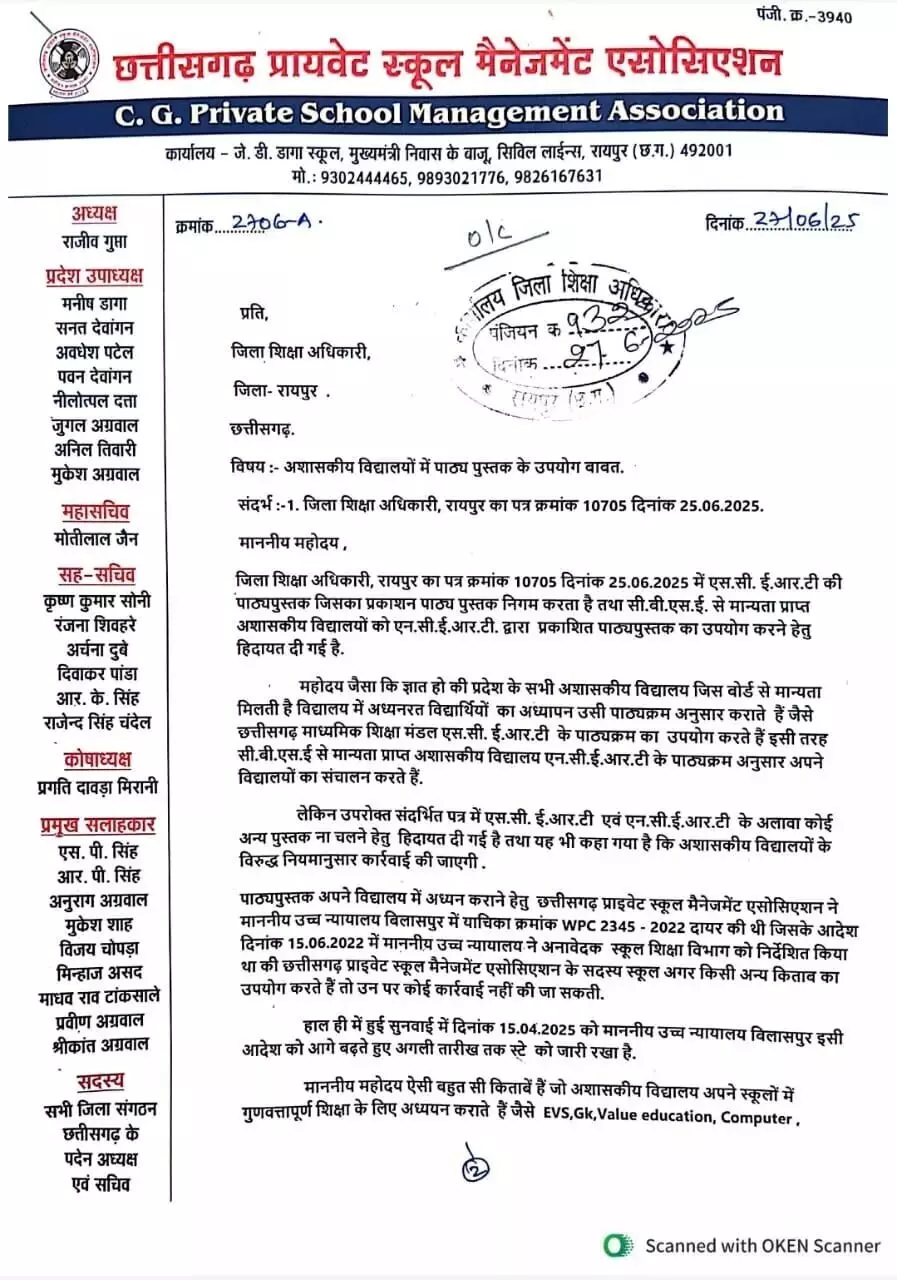 पंजी. क्र.-3940
छत्तीसगढ़ प्रायवेट स्कूल मैनेजमेंट एसोसिएशन
C. G. Private School Management Association
कार्यालय – जे. डी. डागा स्कूल, मुख्यमंत्री निवास के बाजू, सिविल लाईन्स, रायपुर (छ.ग.) 492001
मो.: 9302444465, 9893021776, 9826167631
अध्यक्ष
राजीव गुप्ता
प्रदेश उपाध्यक्ष
मनीष डागा
सनत देवांगन
अवधेश पटेल
पवन देवांगन
नीलोत्पल दत्ता
जुगल अग्रवाल
अनिल तिवारी
मुकेश अग्रवाल
महासचिव
मोतीलाल जैन
सह-सचिव
कृष्ण कुमार सोनी
रंजना शिवहरे
अर्चना दुबे
दिवाकर पांडा
आर. के. सिंह
राजेन्द सिंह चंदेल
कोषाध्यक्ष
प्रगति दावड़ा मिरानी
प्रमुख सलाहकार
एस. पी. सिंह
आर. पी. सिंह
अनुराग अग्रवाल
मुकेश शाह
विजय चोपड़ा
मिन्हाज असद
माधव राव टांकसाले
प्रवीण अग्रवाल
श्रीकांत अग्रवाल
सदस्य
सभी जिला संगठन
छत्तीसगढ़ के
पदेन अध्यक्ष
एवं सचिव
क्रमांक....2706-A.
दिनांक..27/06/25
o/c
कार्यालय जिला शिक्षा अधिकारी
पंजियन क 932
दिनांक ...27 6-2025
रायपुर (छ.ग.)
प्रति,
जिला शिक्षा अधिकारी,
जिला- रायपुर .
छत्तीसगढ़.
विषय :- अशासकीय विद्यालयों में पाठ्य पुस्तक के उपयोग बावत.
संदर्भ :-1. जिला शिक्षा अधिकारी, रायपुर का पत्र क्रमांक 10705 दिनांक 25.06.2025.
माननीय महोदय ,
जिला शिक्षा अधिकारी, रायपुर का पत्र क्रमांक 10705 दिनांक 25.06.2025 में एस.सी. ई.आर.टी की
पाठ्यपुस्तक जिसका प्रकाशन पाठ्य पुस्तक निगम करता है तथा सी.बी.एस.ई. से मान्यता प्राप्त
अशासकीय विद्यालयों को एन.सी.ई.आर.टी. द्वारा प्रकाशित पाठ्यपुस्तक का उपयोग करने हेतु
हिदायत दी गई है.
महोदय जैसा कि ज्ञात हो की प्रदेश के सभी अशासकीय विद्यालय जिस बोर्ड से मान्यता
मिलती है विद्यालय में अध्यनरत विद्यार्थियों का अध्यापन उसी पाठ्यक्रम अनुसार कराते हैं जैसे
छत्तीसगढ़ माध्यमिक शिक्षा मंडल एस.सी. ई.आर.टी के पाठ्यक्रम का उपयोग करते हैं इसी तरह
सी.बी.एस.ई से मान्यता प्राप्त अशासकीय विद्यालय एन.सी.ई.आर.टी के पाठ्यक्रम अनुसार अपने
विद्यालयों का संचालन करते हैं.
लेकिन उपरोक्त संदर्भित पत्र में एस.सी. ई.आर.टी एवं एन.सी.ई.आर.टी के अलावा कोई
अन्य पुस्तक ना चलने हेतु हिदायत दी गई है तथा यह भी कहा गया है कि अशासकीय विद्यालयों के
विरुद्ध नियमानुसार कार्रवाई की जाएगी .
पाठ्यपुस्तक अपने विद्यालय में अध्यन कराने हेतु छत्तीसगढ़ प्राइवेट स्कूल मैनेजमेंट एसोसिएशन ने
माननीय उच्च न्यायालय बिलासपुर में याचिका क्रमांक WPC 2345 - 2022 दायर की थी जिसके आदेश
दिनांक 15.06.2022 में माननीय उच्च न्यायालय ने अनावेदक स्कूल शिक्षा विभाग को निर्देशित किया
था की छत्तीसगढ़ प्राइवेट स्कूल मैनेजमेंट एसोसिएशन के सदस्य स्कूल अगर किसी अन्य किताब का
उपयोग करते हैं तो उन पर कोई कार्रवाई नहीं की जा सकती.
हाल ही में हुई सुनवाई में दिनांक 15.04.2025 को माननीय उच्च न्यायालय बिलासपुर इसी
आदेश को आगे बढ़ते हुए अगली तारीख तक स्टे को जारी रखा है.
माननीय महोदय ऐसी बहुत सी किताबें हैं जो अशासकीय विद्यालय अपने स्कूलों में
गुणवत्तापूर्ण शिक्षा के लिए अध्ययन कराते हैं जैसे EVS,Gk,Value education, Computer ,
2
Scanned with OKEN Scanner